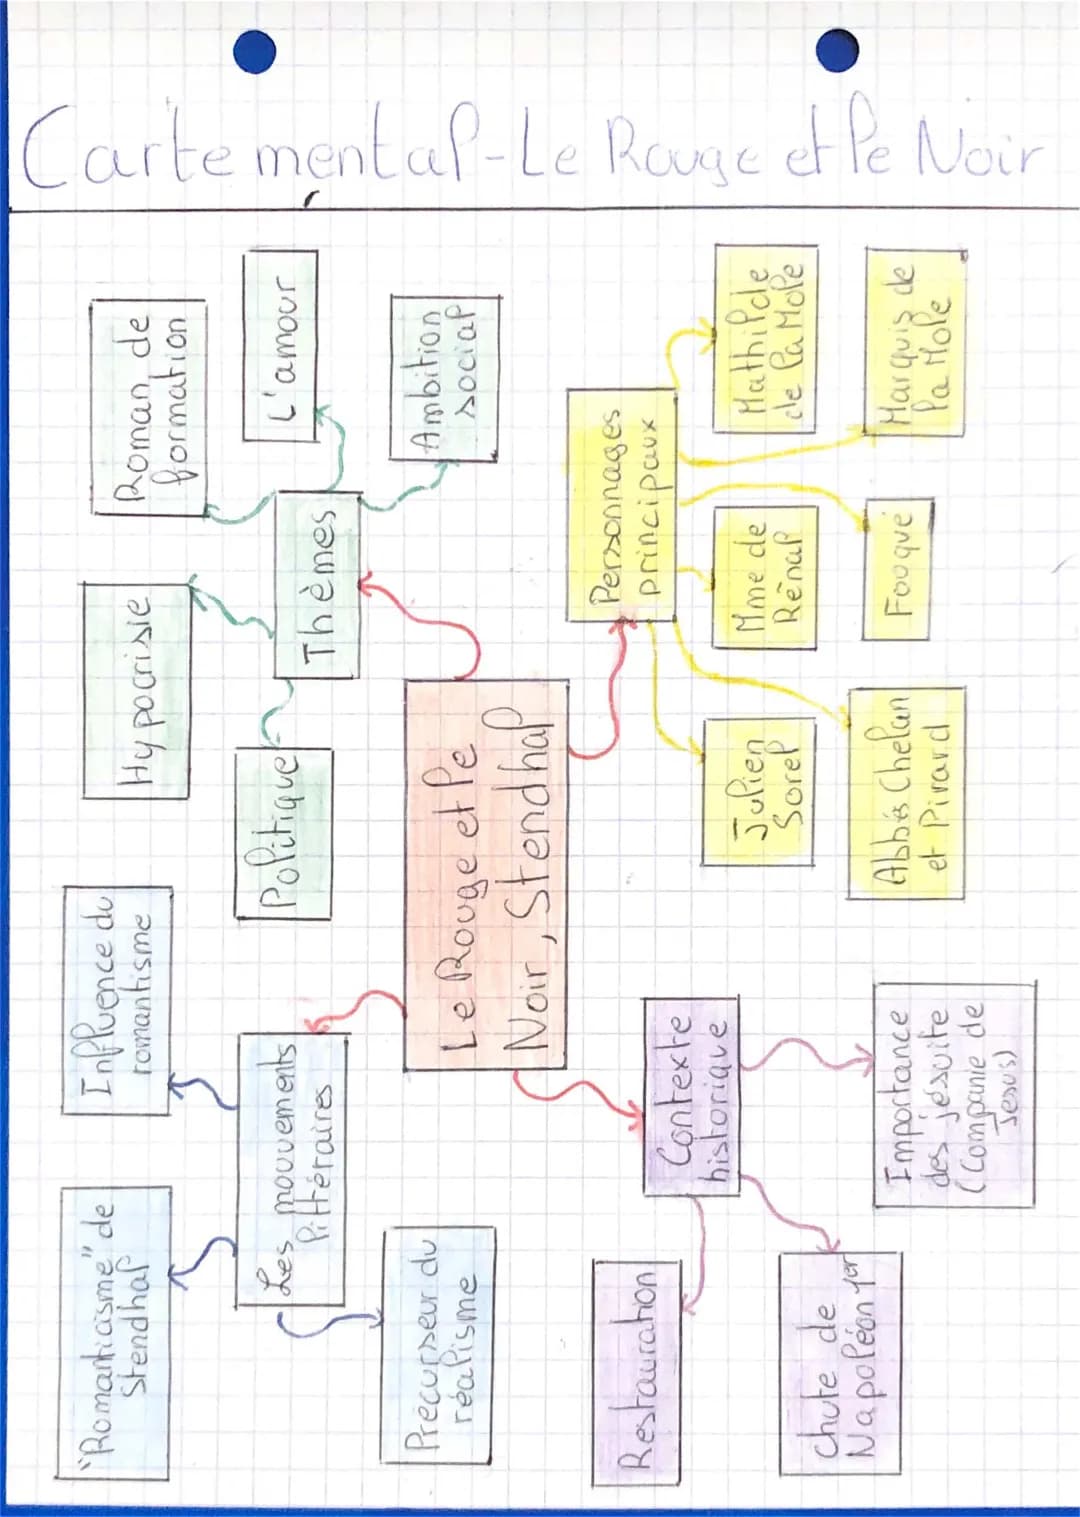 Carte mental-Le Rouge et le Noir
Le Rouge et le
Noir, Stendhal
Thèmes
Politique
Hypocrisie
Roman de
formation
L'amour
Ambition
social
Personnages
principaux
Julien
Sorel
Abbés Chelan
et Pirard
Mme de
Rênal
Fouqué
Marquis de
la Mole
Mathilde
de la Mole
Les mouvements
littéraires
Influence du
romantisme
"Romanticisme" de
Stendhal
Précurseur du
réalisme
Contexte
historique
Restauration
Chute de
Napoléon 1er
Importance
des jésuite
(Companie de
Jesus)